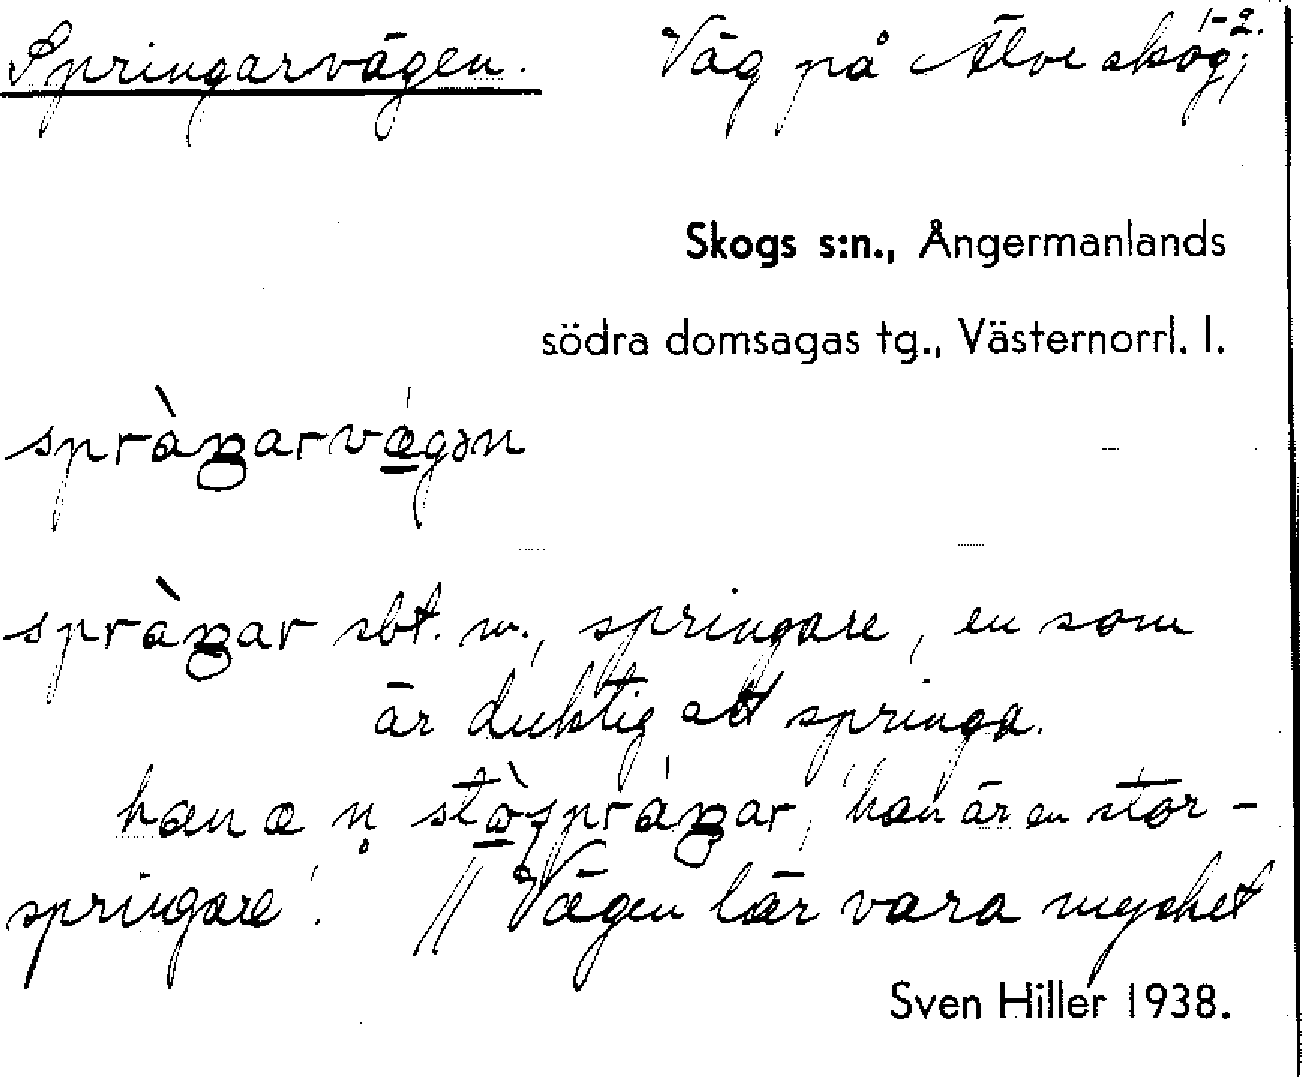 Springarvägen. Väg på Älve skog; 1-2.
Skogs s:n., Ångermanlands
södra domsagas tg., Västernorrl. l.
spràŋarvǽgən
spràŋar sbt. m., springare, en som
är duktig att springa.
han æ n̥ stòspráŋar, 'han är en stor-
springare'. // Vägen lär vara mycket
Sven Hiller 1938.